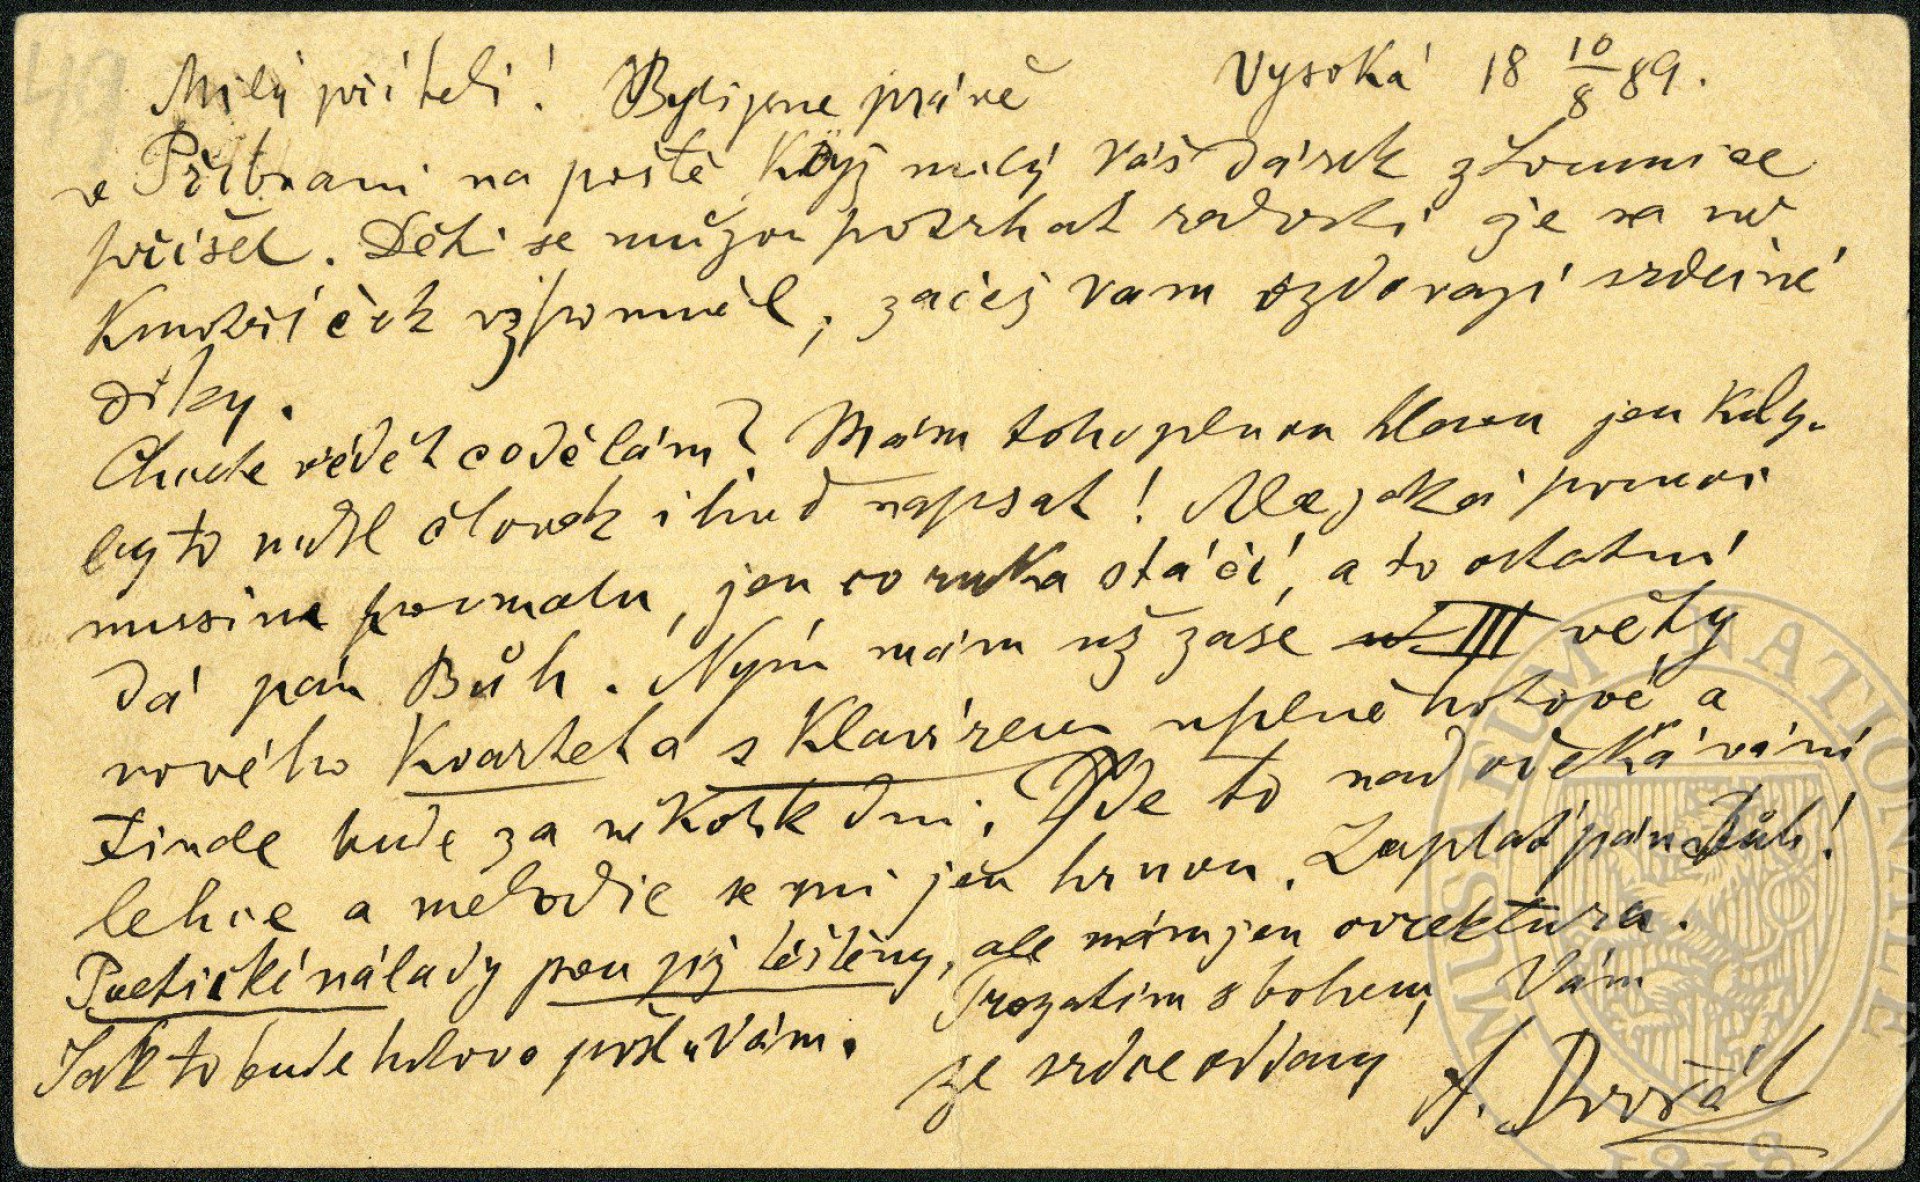 49
Vysoká 18 10/8 89.
Milý příteli! Byli jsme právě
v Příbrami na poště když milý váš dárek z Lomnice
přišel. Děti se můžou potrhat radostí že sa ně
Kmotříček vzpomněl, začež Vam vzdávají srdečné
díky.
Chcete vědět co dělám? Mám toho plnou hlavu jen kdy-
by to mohl člověk ihned napsat! Ale jaká pomoc
musim pomalu, jen co ruka stáčí, a to ostatní
dá pán Bůh. Nyní mám už zase III věty
nového Kvarteta s Klavírem uplně hotové a
finale bude za několik dní. Jde to nad očekávání
lehce a melodie se mi jen hrnou. Zaplať pán Bůh!
Poetické nálady jsou již tištěny, ale mám jen correktura.
Jak to bude hotovo pošlu Vám.
Prozatím s bohem, Vám
ze srdce oddaný
A. Dvořák
MUSAEUM NATIONALE
1818